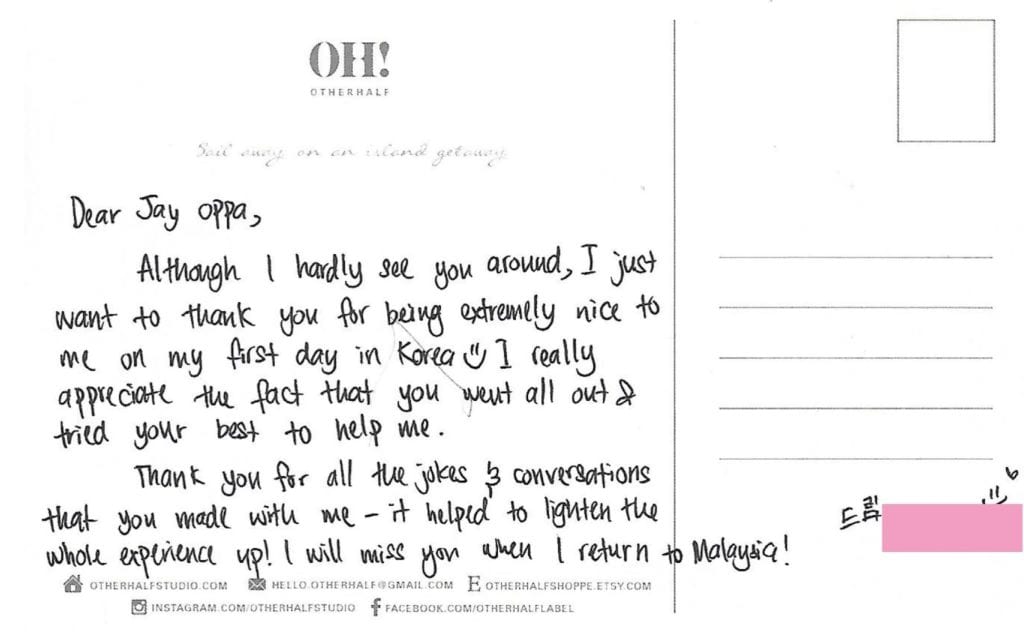 OH!
OTHERHALF
Sail away on an island getaway
Dear Jay oppa,
Although I hardly see you around, I just
want to thank you for being extremely nice to
me on my first day in Korea I really
appreciate the fact that you went all out &
tried your best to help me.
Thank you for all the jokes & conversations
that you made with me - it helped to lighten the
whole experience up! I will miss you when I return to Malaysia!
드림
OTHERHALFSTUDIO.COM HELLO.OTHERHALF@GMAIL.COM E OTHERHALFSHOPPE.ETSY.COM
INSTAGRAM.COM/OTHERHALFSTUDIO f FACEBOOK.COM/OTHERHALFLABEL